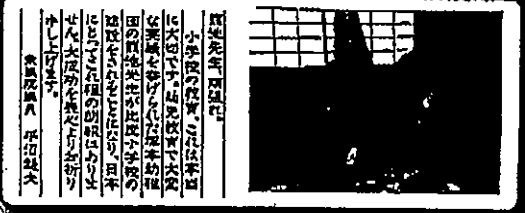 籠池先生、頑張れ。
小学校の教育、これは本当
に大切です。幼児教育で大変
な実績を挙げられた塚本幼稚
園の籠池先生が此度小学校の
建設をされることになり、日本
にとってこれ程の朗報はありま
せん。大成功を衷心よりお祈り
申し上げます。
衆議院議員 平沼赳夫